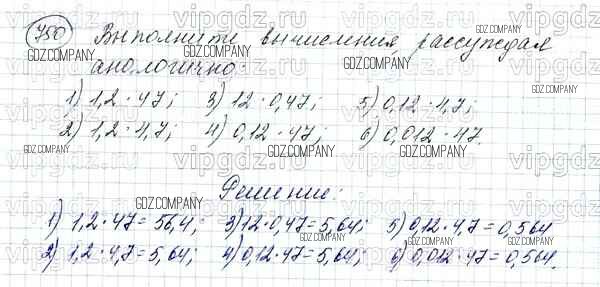 750 Выполните вычисления, рассуждая
анологично:
1) 1,2 · 47; 3) 12 · 0,47; 5) 0,12 · 4,7;
2) 1,2 · 4,7; 4) 0,12 · 47; 6) 0,012 · 47.
Решение:
1) 1,2 · 47 = 56,4; 3) 12 · 0,47 = 5,64; 5) 0,12 · 4,7 = 0,564
2) 1,2 · 4,7 = 5,64; 4) 0,12 · 47 = 5,64; 6) 0,012 · 47 = 0,564.
GDZ.COMPANY
vipgdz.ru